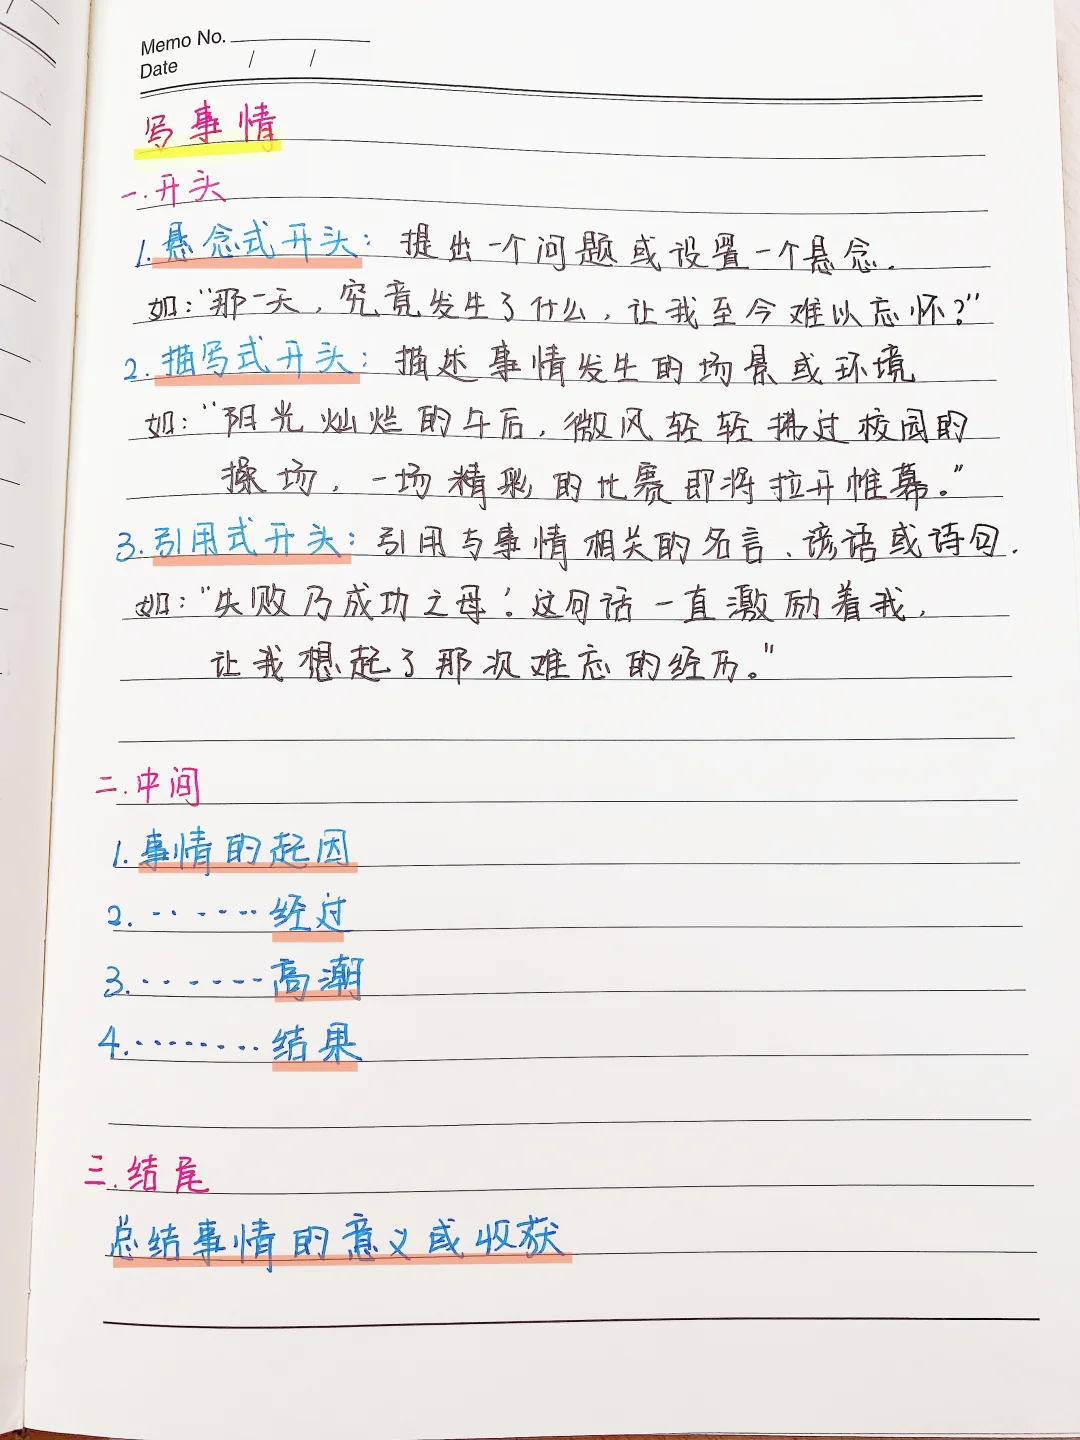 Memo No.
Date / /
写事情
一.开头
1.悬念式开头：提出一个问题或设置一个悬念.
如："那一天，究竟发生了什么，让我至今难以忘怀？"
2.描写式开头：描述事情发生的场景或环境
如："阳光灿烂的午后，微风轻轻拂过校园的
操场，一场精彩的比赛即将拉开帷幕。"
3.引用式开头：引用与事情相关的名言、谚语或诗句.
如："失败乃成功之母'.这句话一直激励着我，
让我想起了那次难忘的经历。"
二.中间
1.事情的起因
2.·······经过
3.·······高潮
4.········结果
三.结尾
总结事情的意义或收获